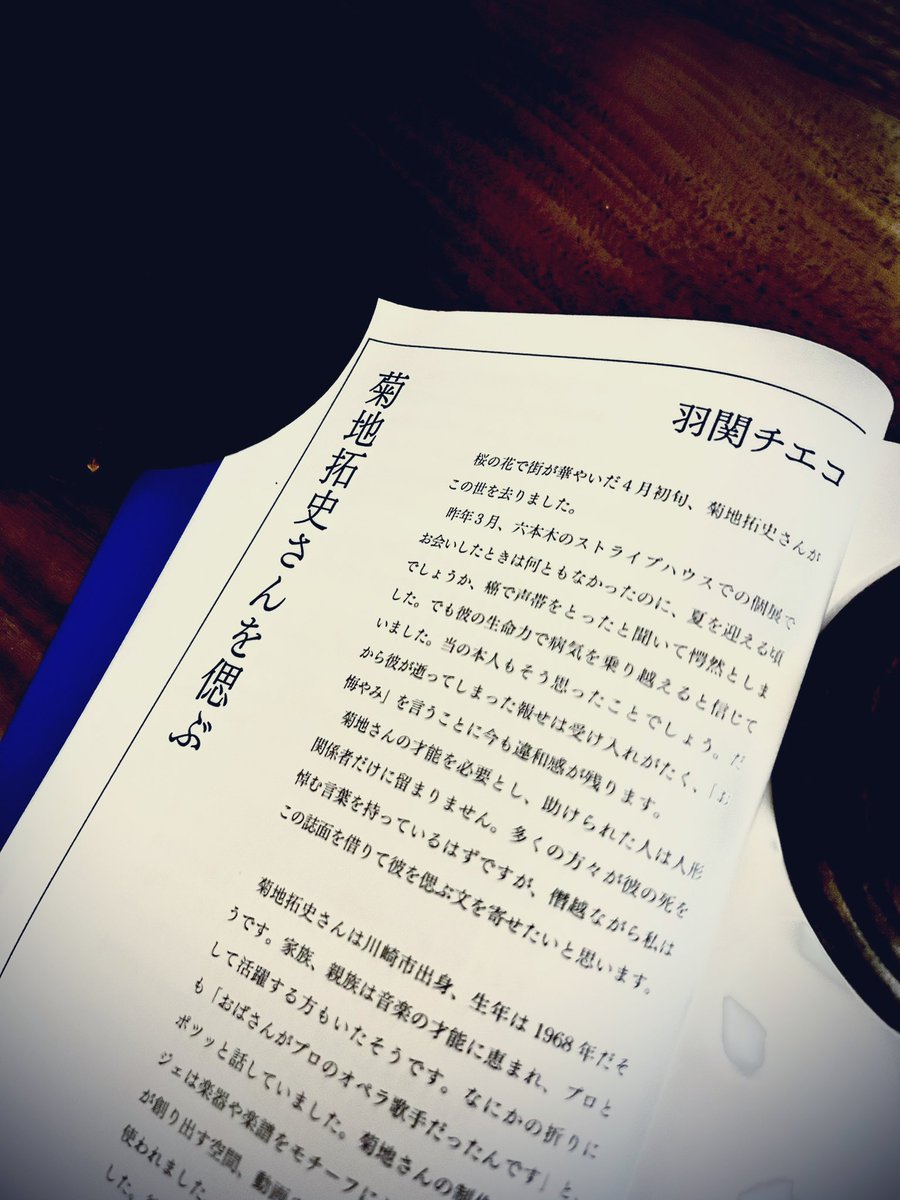 羽関チエコ
菊地拓史さんを偲ぶ
桜の花で街が華やいだ4月初旬、菊地拓史さんが
この世を去りました。
昨年3月、六本木のストライプハウスでの個展で
お会いしたときは何ともなかったのに、夏を迎える頃
でしょうか、癌で声帯をとったと聞いて愕然としま
した。でも彼の生命力で病気を乗り越えると信じて
いました。当の本人もそう思ったことでしょう。だ
から彼が逝ってしまった報せは受け入れがたく、「お
悔やみ」を言うことに今も違和感が残ります。
菊地さんの才能を必要とし、助けられた人は人形
関係者だけに留まりません。多くの方々が彼の死を
悼む言葉を持っているはずですが、僭越ながら私は
この誌面を借りて彼を偲ぶ文を寄せたいと思います。
菊地拓史さんは川崎市出身、生年は1968年だそ
うです。家族、親族は音楽の才能に恵まれ、プロと
して活躍する方もいたそうです。なにかの折りに
も「おばさんがプロのオペラ歌手だったんです」と、
ポツッと話していました。菊地さんの制作
ジェは楽器や楽譜をモチーフに
が創り出す空間、動画の
使われました
した。